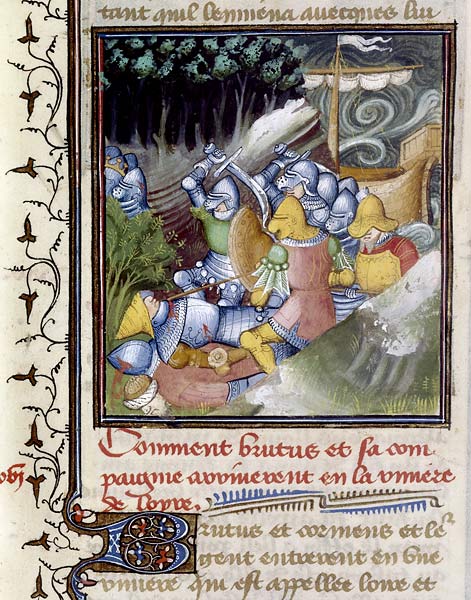 tant quil lenmena avecques lui
Comment brutus et sa com
paignie arriverent en la riviere
de loyre.
Brutus et corineus et le
gent entrerent en une
riviere qui est appellee loire et